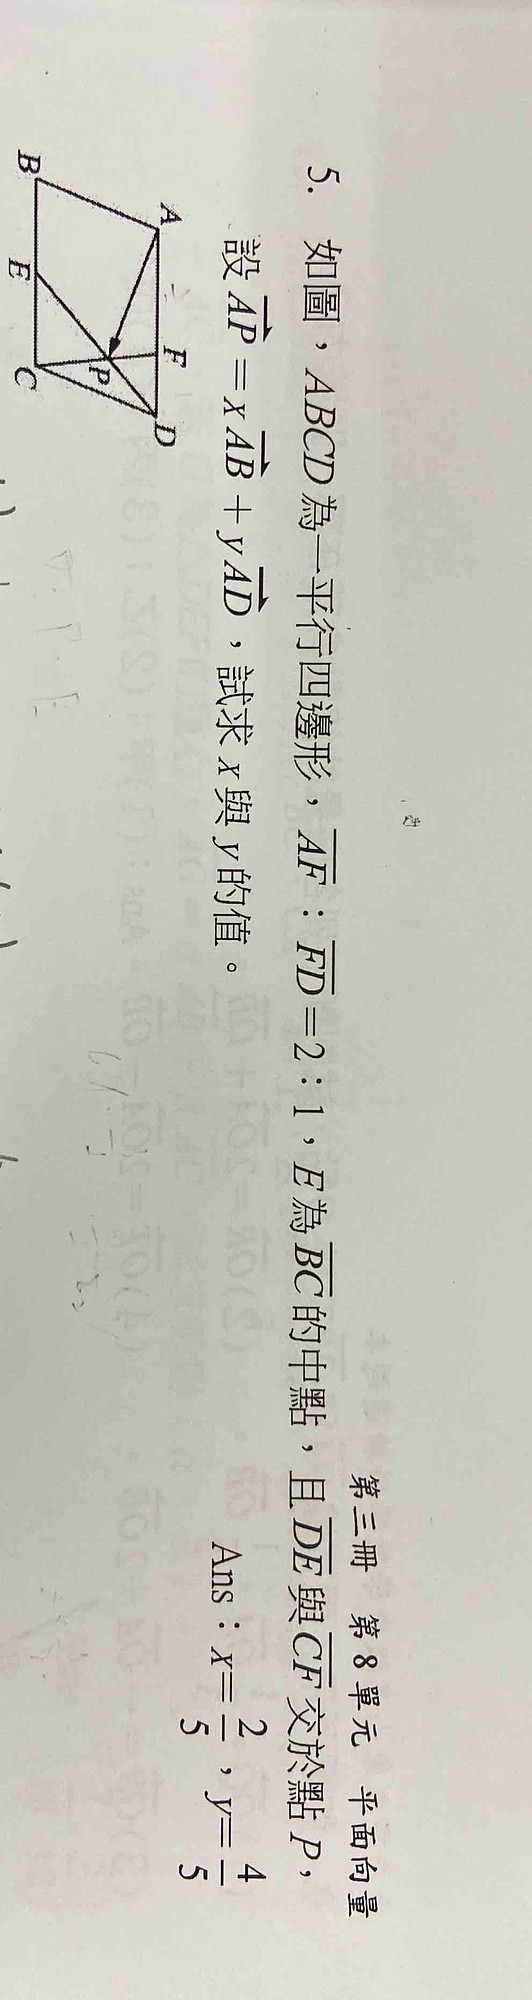 第三冊 第8單元 平面向量
5. 如圖，ABCD為一平行四邊形，AF：FD=2：1，E為BC的中點，且DE與CF交於點P，
設AP=xAB+yAD，試求x與y的值。 Ans：x=2/5，y=4/5
A F D
P
B E C